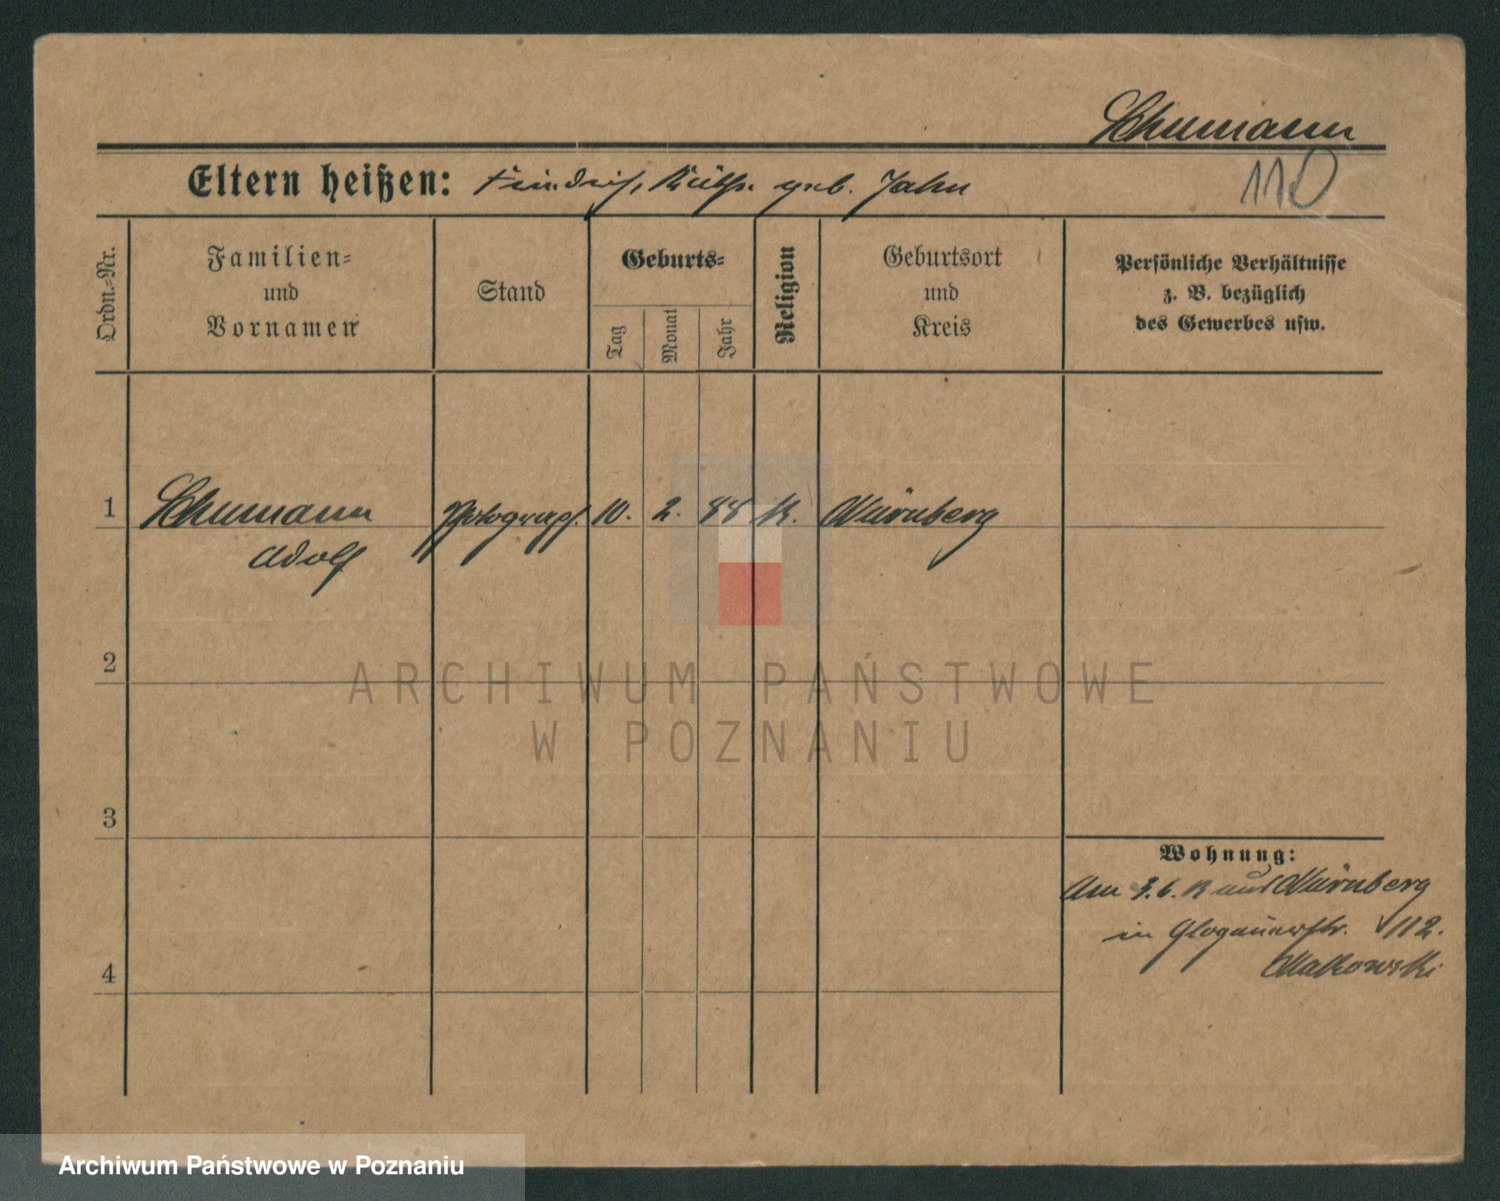 Schumann
110
Eltern heißen: Friedrich, Kath. geb. Jahn
Ordn.-Nr.
Familien-
und
Vornamen
Stand
Geburts-
Tag
Monat
Jahr
Religion
Geburtsort
und
Kreis
Persönliche Verhältnisse
z. B. bezüglich
des Gewerbes usw.
1 Schumann Photograph. 10. 2. 88 K. Nürnberg
Adolf
2
3
4
Wohnung:
Am 3.6. aus Nürnberg
in Glogauerstr. 112.
Malkowski
ARCHIWUM PAŃSTWOWE
W POZNANIU
Archiwum Państwowe w Poznaniu